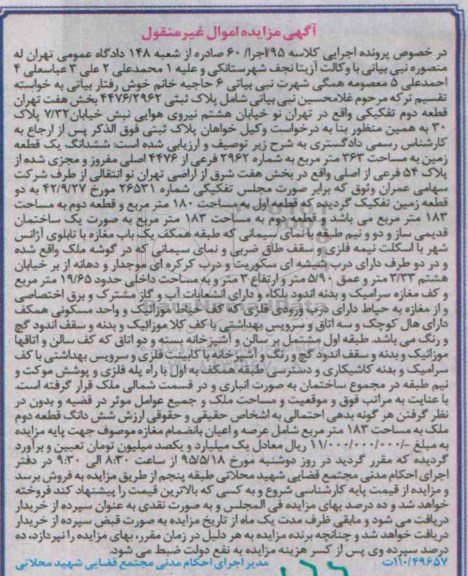 آگهی مزایده اموال غیر منقول
در خصوص پرونده اجرایی کلاسه ۹۵/اجرا/ ۶۰ صادره از شعبه ۱۴۸ دادگاه عمومی تهران له
منصوره نبی بیاتی با وکالت آزیتا نجف شهرستانکی و علیه ۱ محمدعلی ۲ علی ۳ عباسعلی ۴
احمدعلی ۵ معصومه همگی شهرت نبی بیاتی ۶ حاجیه خانم خوش رفتار بیاتی به خواسته
تقسیم ترکه مرحوم غلامحسین نبی بیاتی شامل پلاک ثبتی ۴۴۷۶/۲۹۶۲ بخش هفت تهران
قطعه دوم تفکیکی واقع در تهران نو خیابان هشتم نیروی هوایی نبش خیابان ۷/۳۲ پلاک
۳۰ به همین منظور بنا به درخواست وکیل خواهان پلاک ثبتی فوق الذکر پس از ارجاع به
کارشناس رسمی دادگستری به شرح زیر توصیف و ارزیابی شده است: ششدانگ یک قطعه
زمین به مساحت ۳۶۳ متر مربع به شماره ۲۹۶۲ فرعی از ۴۴۷۶ اصلی مفروز و مجزی شده از
پلاک ۵۴ فرعی از اصلی واقع در بخش هفت شرق از اراضی تهران نو انتقالی از طرف شرکت
سهامی عمران وثوق که برابر صورت مجلس تفکیکی شماره ۲۶۵۳۱ مورخ ۴۲/۹/۲۷ به دو
قطعه زمین تفکیک گردیده که قطعه اول به مساحت ۱۸۰ متر مربع و قطعه دوم به مساحت
۱۸۳ متر مربع می باشد و قطعه دوم به مساحت ۱۸۳ متر مربع به صورت یک ساختمان
قدیمی ساز و دو و نیم طبقه با نمای سیمانی که طبقه همکف یک باب مغازه با تابلوی آژانس
شهر با اسکلت نیمه فلزی و سقف طاق ضربی و نمای سیمانی که در گوشه ملک واقع شده
و در دو طرف دارای درب شیشه ای سکوریت و درب کرکره ای موجدار و دهانه از بر خیابان
هشتم ۳/۳۳ متر و عمق ۵/۹۰ متر و ارتفاع ۳ متر و به مساحت داخلی حدود ۱۹/۶۵ متر مربع
و کف مغازه سرامیک و بدنه اندود بلکاء و دارای انشعابات آب و گاز مشترک و برق اختصاصی
و از مغازه به حیاط دارای درب ورودی فلزی که کف حیاط موزائیک و واحد مسکونی همکف
دارای هال کوچک و سه اتاق و سرویس بهداشتی با کف کلا موزائیک و بدنه و سقف اندود گچ
و رنگ می باشد. طبقه اول مشتمل بر سالن و آشپزخانه بسته و دو اتاق که کف سالن و اتاقها
موزائیک و بدنه و سقف اندود گچ و رنگ و آشپزخانه با کابینت فلزی و سرویس بهداشتی با کف
سرامیک و بدنه کاشیکاری و دسترسی طبقه همکف به اول با راه پله فلزی و پوشش موکت و
نیم طبقه در مجموع ساختمان به صورت انباری و در قسمت شمالی ملک قرار گرفته است.
با عنایت به مراتب فوق و موقعیت و مساحت ملک و جمیع عوامل موثر در قضیه و بدون در
نظر گرفتن هر گونه بدهی احتمالی به اشخاص حقیقی و حقوقی ارزش شش دانگ قطعه دوم
ملک به مساحت ۱۸۳ متر مربع شامل عرصه و اعیان بانضمام مغازه موصوف جهت پایه مزایده
به مبلغ -/۱۱/۰۰۰/۰۰۰/۰۰۰ ریال معادل یک میلیارد و یکصد میلیون تومان تعیین و برآورد
گردیده که مقرر گردید در روز دوشنبه مورخ ۹۵/۵/۱۸ از ساعت ۸:۳۰ الی ۹:۳۰ در دفتر
اجرای احکام مدنی مجتمع قضایی شهید محلاتی طبقه پنجم از طریق مزایده به فروش برسد
و مزایده از قیمت پایه کارشناسی شروع و به کسی که بالاترین قیمت را پیشنهاد کند فروخته
خواهد شد و ده درصد بهای مزایده فی المجلس و به صورت نقدی به عنوان سپرده از خریدار
دریافت می شود و مابقی ظرف مدت یک ماه از تاریخ مزایده به صورت قبض سپرده از خریدار
دریافت خواهد شد و چنانچه برنده مزایده به هر دلیل در زمان مقرر، بهای مزایده را نپردازد، ده
درصد سپرده وی پس از کسر هزینه مزایده به نفع دولت ضبط می شود.
۱۱۰/۴۹۶۵۷ت مدیر اجرای احکام مدنی مجتمع قضایی شهید محلاتی